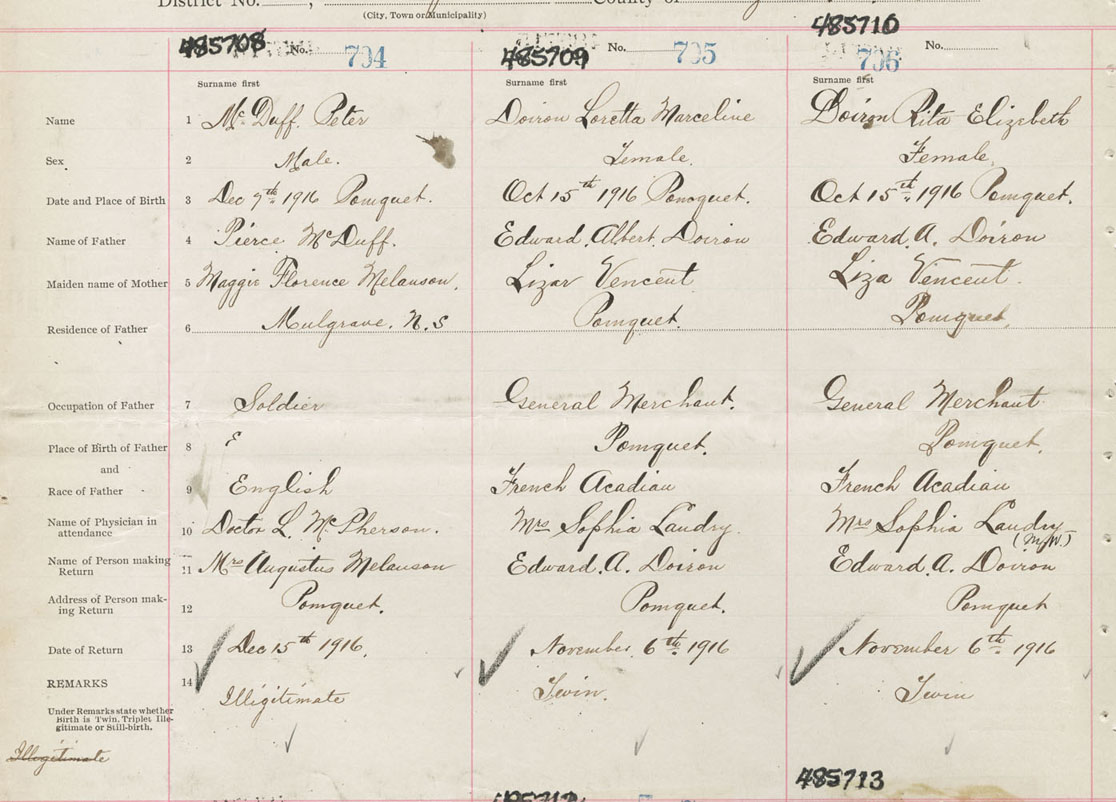 District No. County of
(City, Town or Municipality)
485708 No. 704
485709 No. 705
485710 706 No.
Surname first Surname first Surname first
Name 1 Mc Duff Peter Doiron Loretta Marceline Doiron Rita Elizebeth
Sex 2 Male. Female. Female.
Date and Place of Birth 3 Dec 7th 1916 Pomquet. Oct 15th 1916 Pomquet. Oct 15th 1916 Pomquet.
Name of Father 4 Pierce McDuff. Edward. Albert. Doiron Edward. A. Doiron
Maiden name of Mother 5 Maggie Florence Melanson. Lizar Vencent Liza Vencent.
Residence of Father 6 Mulgrave. N.S Pomquet. Pomquet.
Occupation of Father 7 Soldier General Merchant. General Merchant.
Place of Birth of Father 8 E Pomquet. Pomquet.
and
Race of Father 9 English French Acadian French Acadian
Name of Physician in
attendance 10 Doctor L. McPherson. Mrs Sophia Landry. Mrs Sophia Landry
(M.W.)
Name of Person making
Return 11 Mrs Augustus Melanson Edward. A. Doiron Edward. A. Doiron
Address of Person mak-
ing Return 12 Pomquet. Pomquet. Pomquet
Date of Return 13 Dec 15th 1916. November 6th 1916 November 6th 1916
REMARKS 14 Illigitimate Twin. Twin
Under Remarks state whether
Birth is Twin, Triplet Ille-
gitimate or Still-birth.
Illegitimate
485713